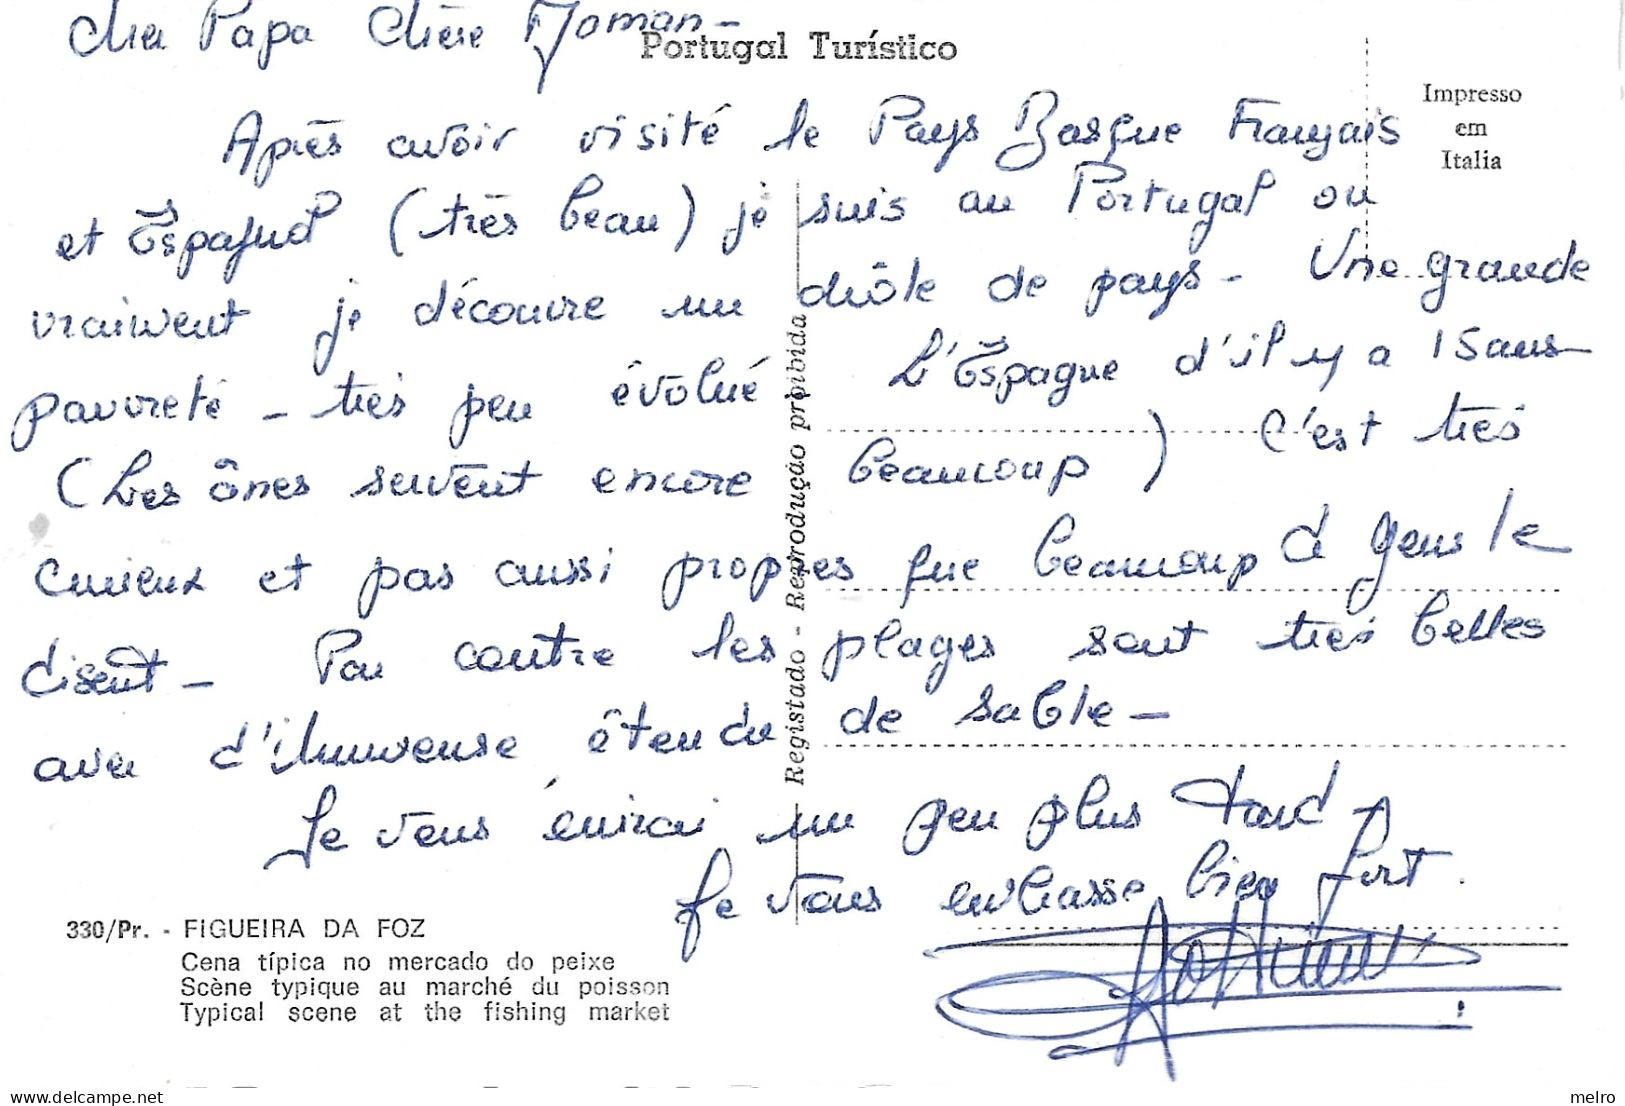 Cher Papa Chère Maman -
Portugal Turístico
Impresso
em
Italia
Après avoir visité le Pays Basque Français
et Espagnol (très beau) je suis au Portugal ou
vraiment je découvre un drôle de pays - Une grande
pauvreté - très peu évolué L'Espagne d'il y a 15 ans -
(Les ânes servent encore beaucoup) C'est très
curieux et pas aussi propres que beaucoup d gens le
disent - Par contre les plages sont très belles
avec d'immense étendu de sable -
Je vous écrirai un peu plus tard
Je vous embrasse bien fort.
Registado - Reprodução proibida
330/Pr. - FIGUEIRA DA FOZ
Cena típica no mercado do peixe
Scène typique au marché du poisson
Typical scene at the fishing market
melro